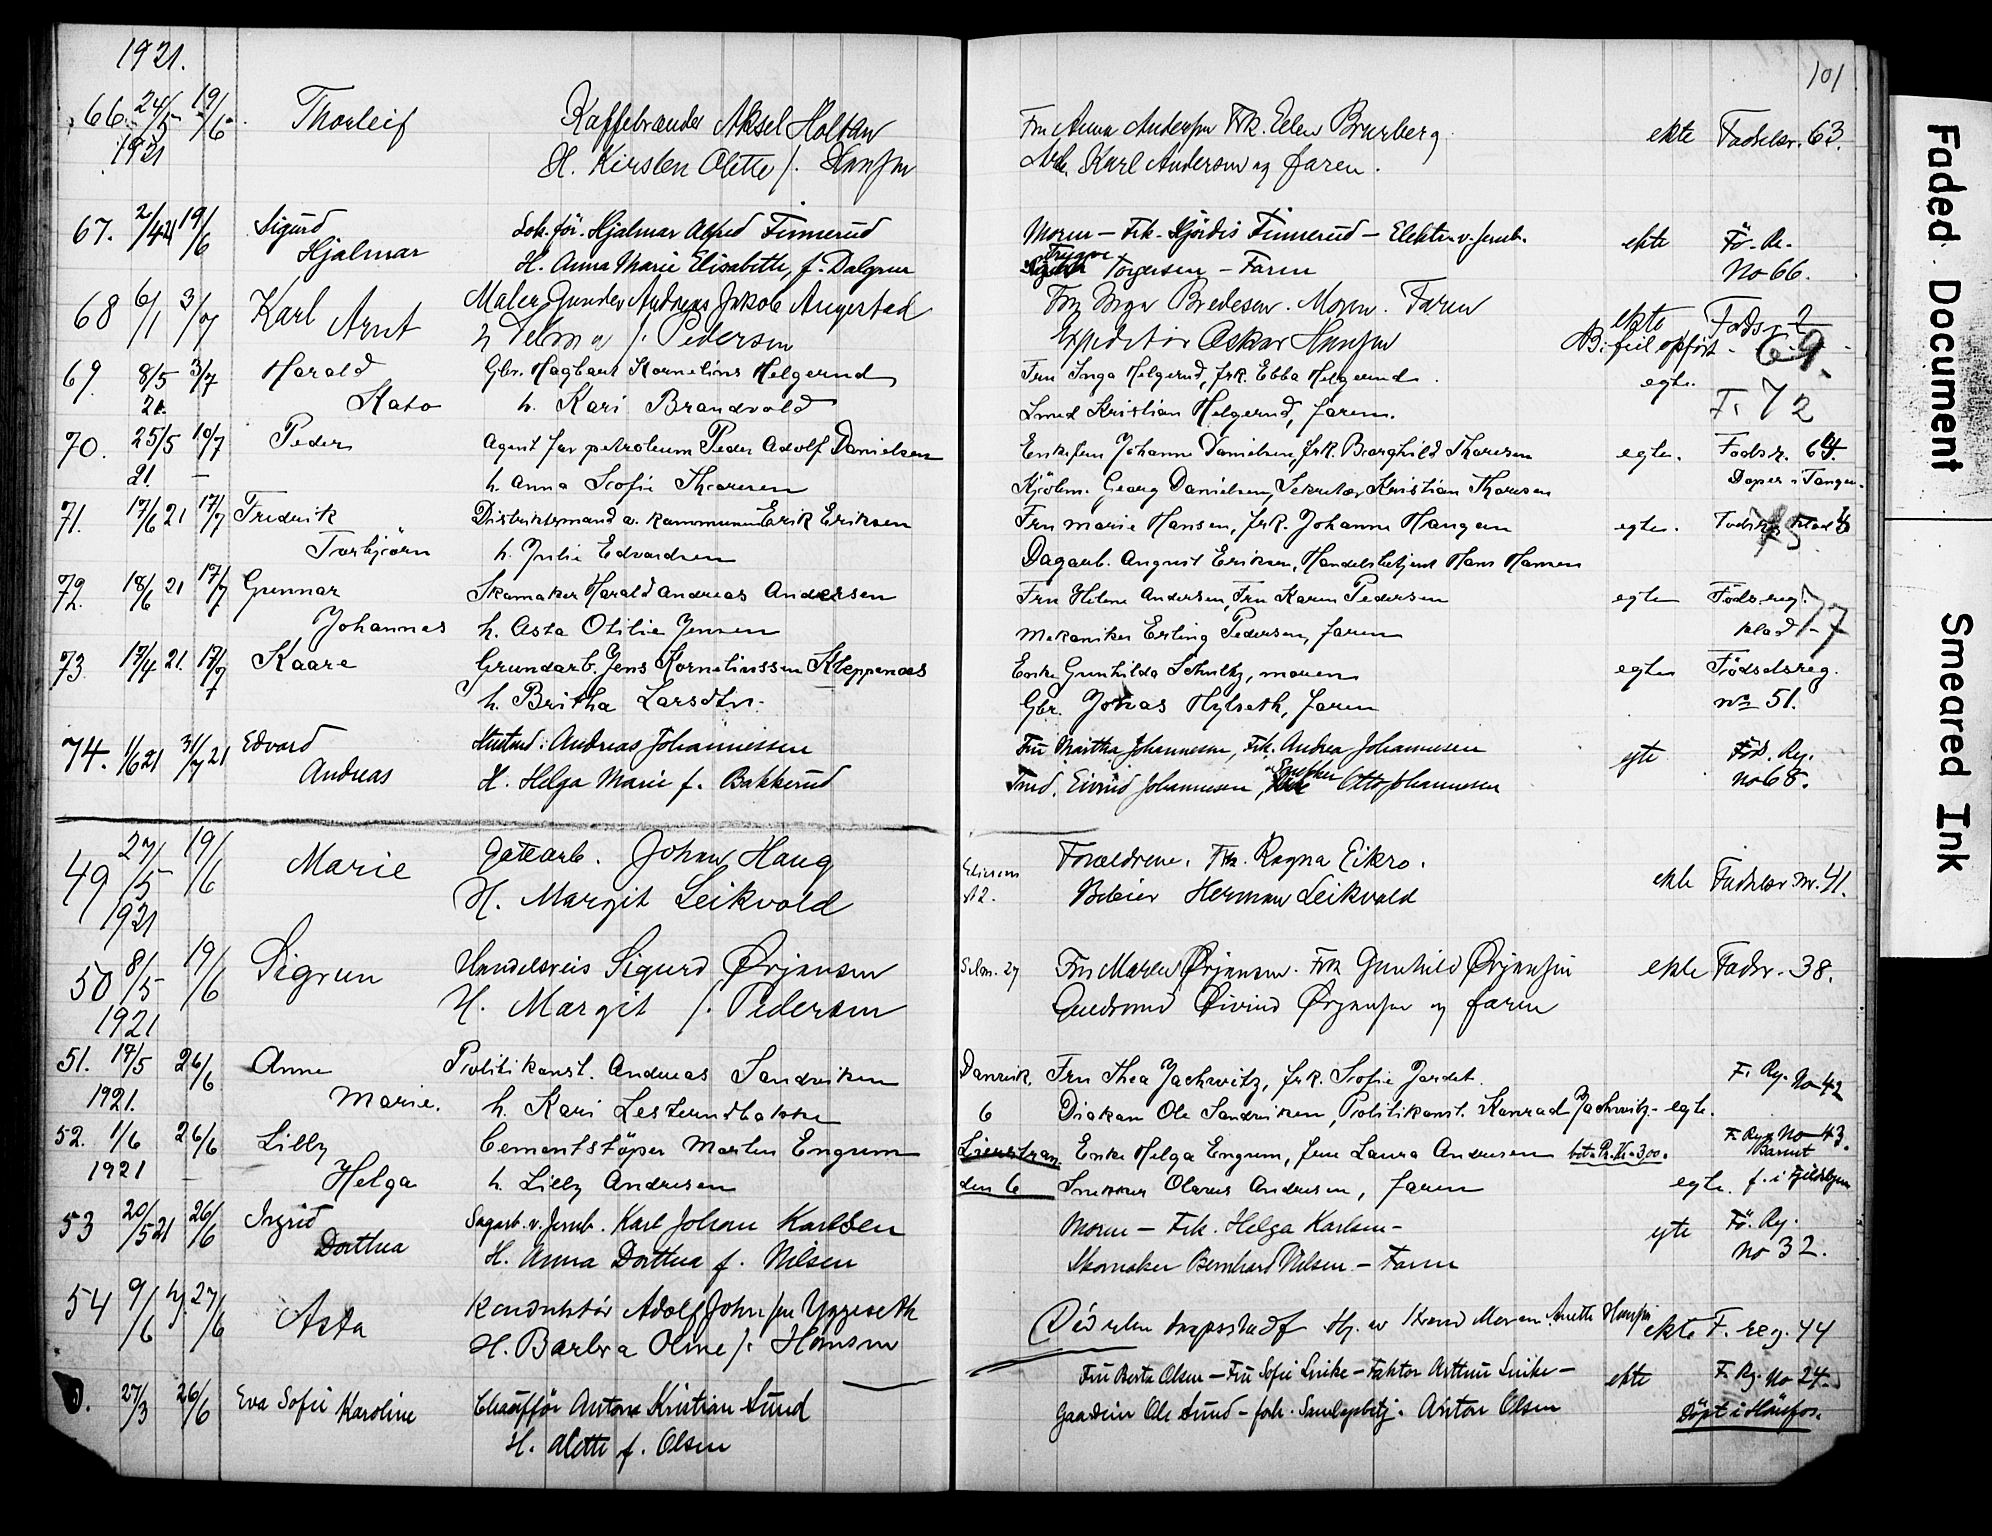 1921.
101
66. 24/5 1921 19/6 Thorleif Kaffebrænder Aksel Holtan Fru Anna Andersen Frk. Ellen Bruberg ekte Fødselsr. 63.
H. Kirsten Olette f. Hansen Karl Anderson og faren.
67. 2/4 21 19/6 Sigurd Lok.för. Hjalmar Alfred Finnerud Moren – Frk. Hjördis Finnerud – Elektr. v. Jernb. ekte Fö. Re.
Hjalmar H. Anna Marie Elisabeth, f. Dalgren Trygve Torgersen – Faren No 66.
68 6/1 3/7 Karl Maler Gunder Andreas Jakob Angestad Fru Inga Bredesen. Moren. Faren ekte Føds. 2
Arnt f. Pedersen Expeditör Oskar Hansen feil opført 69.
69. 8/5 21. 3/7 Harald Gbr. Hagbart Kornelius Helgerud Fru Inga Helgerud, frk. Ebba Helgerud. egte. F. 72
Kato h. Kari Brandvold Smed Kristian Helgerud, faren.
70. 25/5 21. 10/7 Peder Agent for petroleum Peder Adolf Danielsen Enkefru Johanne Danielsen, frk. Borghild Thoresen egte. Fødsr. 64.
h. Anna Sofie Thoresen Georg Danielsen, Sekretær Kristian Thoresen Døper i Tangen.
71. 17/6 21 17/7 Fredrik Distriktsmand v. kommunen Erik Eriksen Fru Marie Hansen, frk. Johanne Haugen egte. 75
Torbjörn h. Julie Edvardsen Dagarb. August Eriksen, Handelsbetjent Hans Hansen
72. 18/6 21 17/7 Gunnar Skomaker Harald Andreas Andersen Fru Helene Andersen, Fru Karen Pedersen egte Föds.reg.
Johannes h. Asta Otilie Jensen Mekaniker Erling Pedersen, faren klad – 77
73. 17/4 21. 17/7 Kaare Grundarb. Jens Kornelinssen Kleppenæs Enke Gunhilda Schultz, moren egte Födselsreg.
h. Britha Larsdtr. Gbr. Jonas Hylseth, faren No 51.
74. 1/6 21 31/7 21 Edvard Andreas Johannessen Fru Martha Johannesen, Frk. Andrea Johannesen egte Föd. Reg.
Andreas H. Helga Marie f. Bakkerud Eivind Johannesen, Snekker Otto Johannesen No 68.
49 27/5 1921 19/6 Marie Gatearb. Johan Haug Forældrene. Frk. Ragna Eikro. ekte Fødselsr nr. 41.
H. Margit Leikvold 12. Herman Leikvold
50 8/5 1921 19/6 Sigrun Handelsreis Sigurd Ørjansen 27 Fru Maren Ørjansen. Frk Gunhild Ørjansen ekte Fødsr. 38.
H. Margit f. Pedersen Øivind Ørjansen og faren
51. 17/5 1921. 26/6 Anne Politikonst. Andreas Sandviken Danvik. Fru Thea Jachwitz, frk. Sofie Jordet. F. Reg. No 42
Marie. h. Kari 6 Diakon Ole Sandviken, Politikonst. Konrad Jachwitz – egte.
52. 1/6 1921 26/6 Lilly Cementstöper Marten Engum Lierstran Enke Helga Engum, Laura Andresen bet. Kr. 3,00. F. Reg. No 43.
Barnet
Helga h. Lilly Andresen den 6 Snekker Olavus Andresen, faren egte. f. i
53 20/5 21 26/6 Ingrid Sagarb. v. Jernb. Karl Johan Karlsen Moren – Frk. Helga Karlsen – egte Fö. Reg.
Dorthea H. Anna Dorthea f. Nilsen Skomaker Bernhard Nilsen – Faren No 32.
54 9/6 27/6 Asta Konduktör Adolf Johnsen Yggeseth Anette Hansen ekte F. reg. 44
H. Barbra Oline f. Hansen
27/3 26/6 Eva Sofie Karoline Chaufför Anton Kristian Lund Fru Berta Olsen – Fru Sofie Linke – Faktor Arthur Linke – ekte F. Reg. No 24
H. Alette f. Olsen Ole Lund – Anton Olsen Döpt i Hönefos.
Faded Document
Smeared Ink